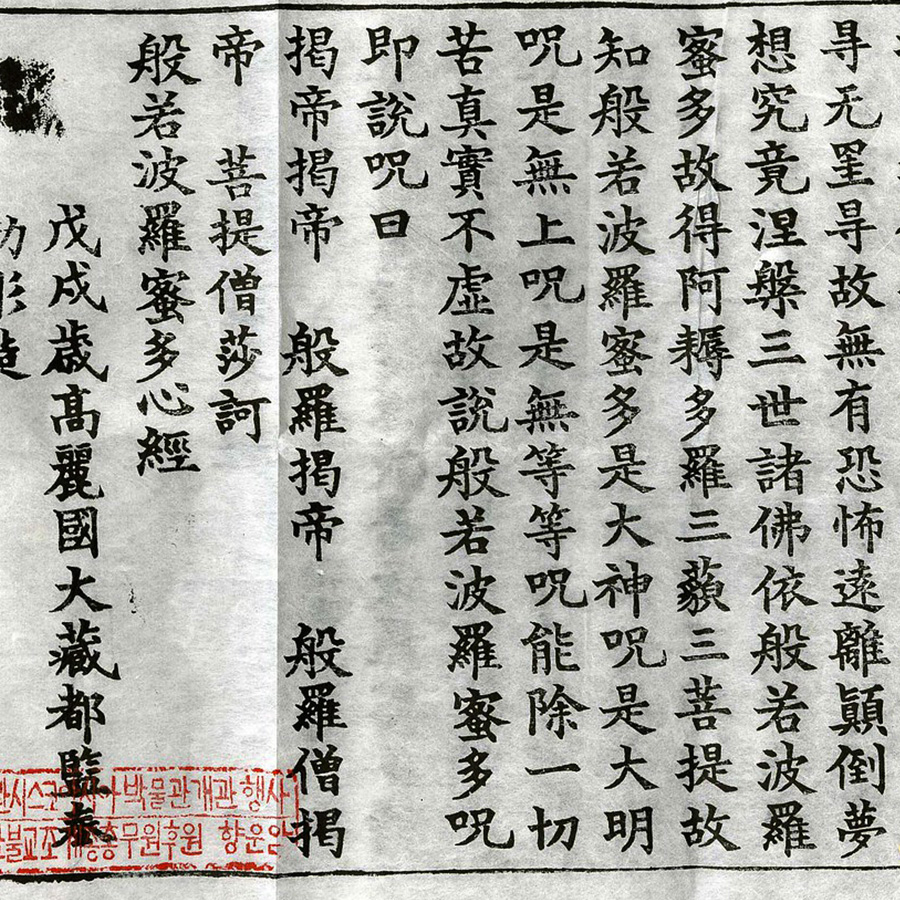 㝵无罣㝵故無有恐怖遠離顚倒夢
想究竟涅槃三世諸佛依般若波羅
蜜多故得阿耨多羅三藐三菩提故
知般若波羅蜜多是大神呪是大明
呪是無上呪是無等等呪能除一切
苦真實不虛故說般若波羅蜜多呪
即說呪曰
揭帝揭帝 般羅揭帝 般羅僧揭
帝 菩提僧莎訶
般若波羅蜜多心經
戊戌歲高麗國大藏都監奉
시스코 박물관개관행사
불교조계종총무원후원 향운암